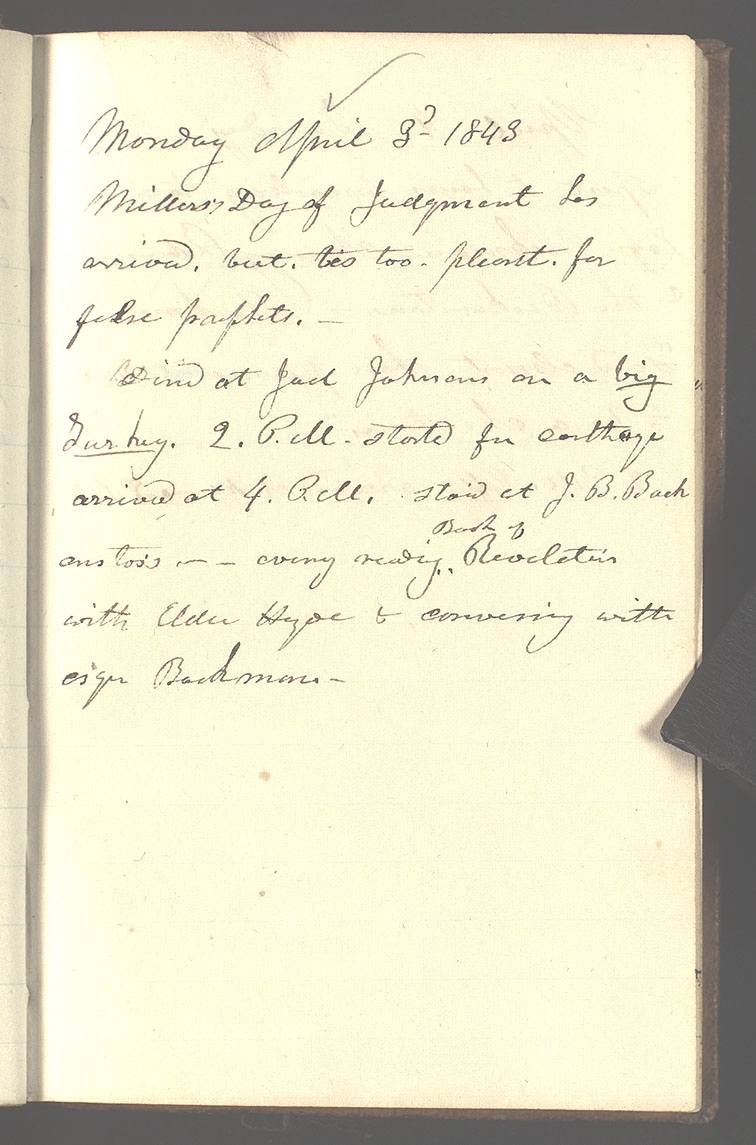 Monday April 3d 1843
Millers's Day of Judgment has
arrived. but. tis too. pleast. for
false prophets. —
Dined at Jacl Johnsons on a big
Turkey. 2. P.M. started for carthage
arrived at 4. P.M. staid at J. B. Back
enstos's — — eveng readig Book of Revelation
with Elder Hyde & conversing with
esqr Backman —